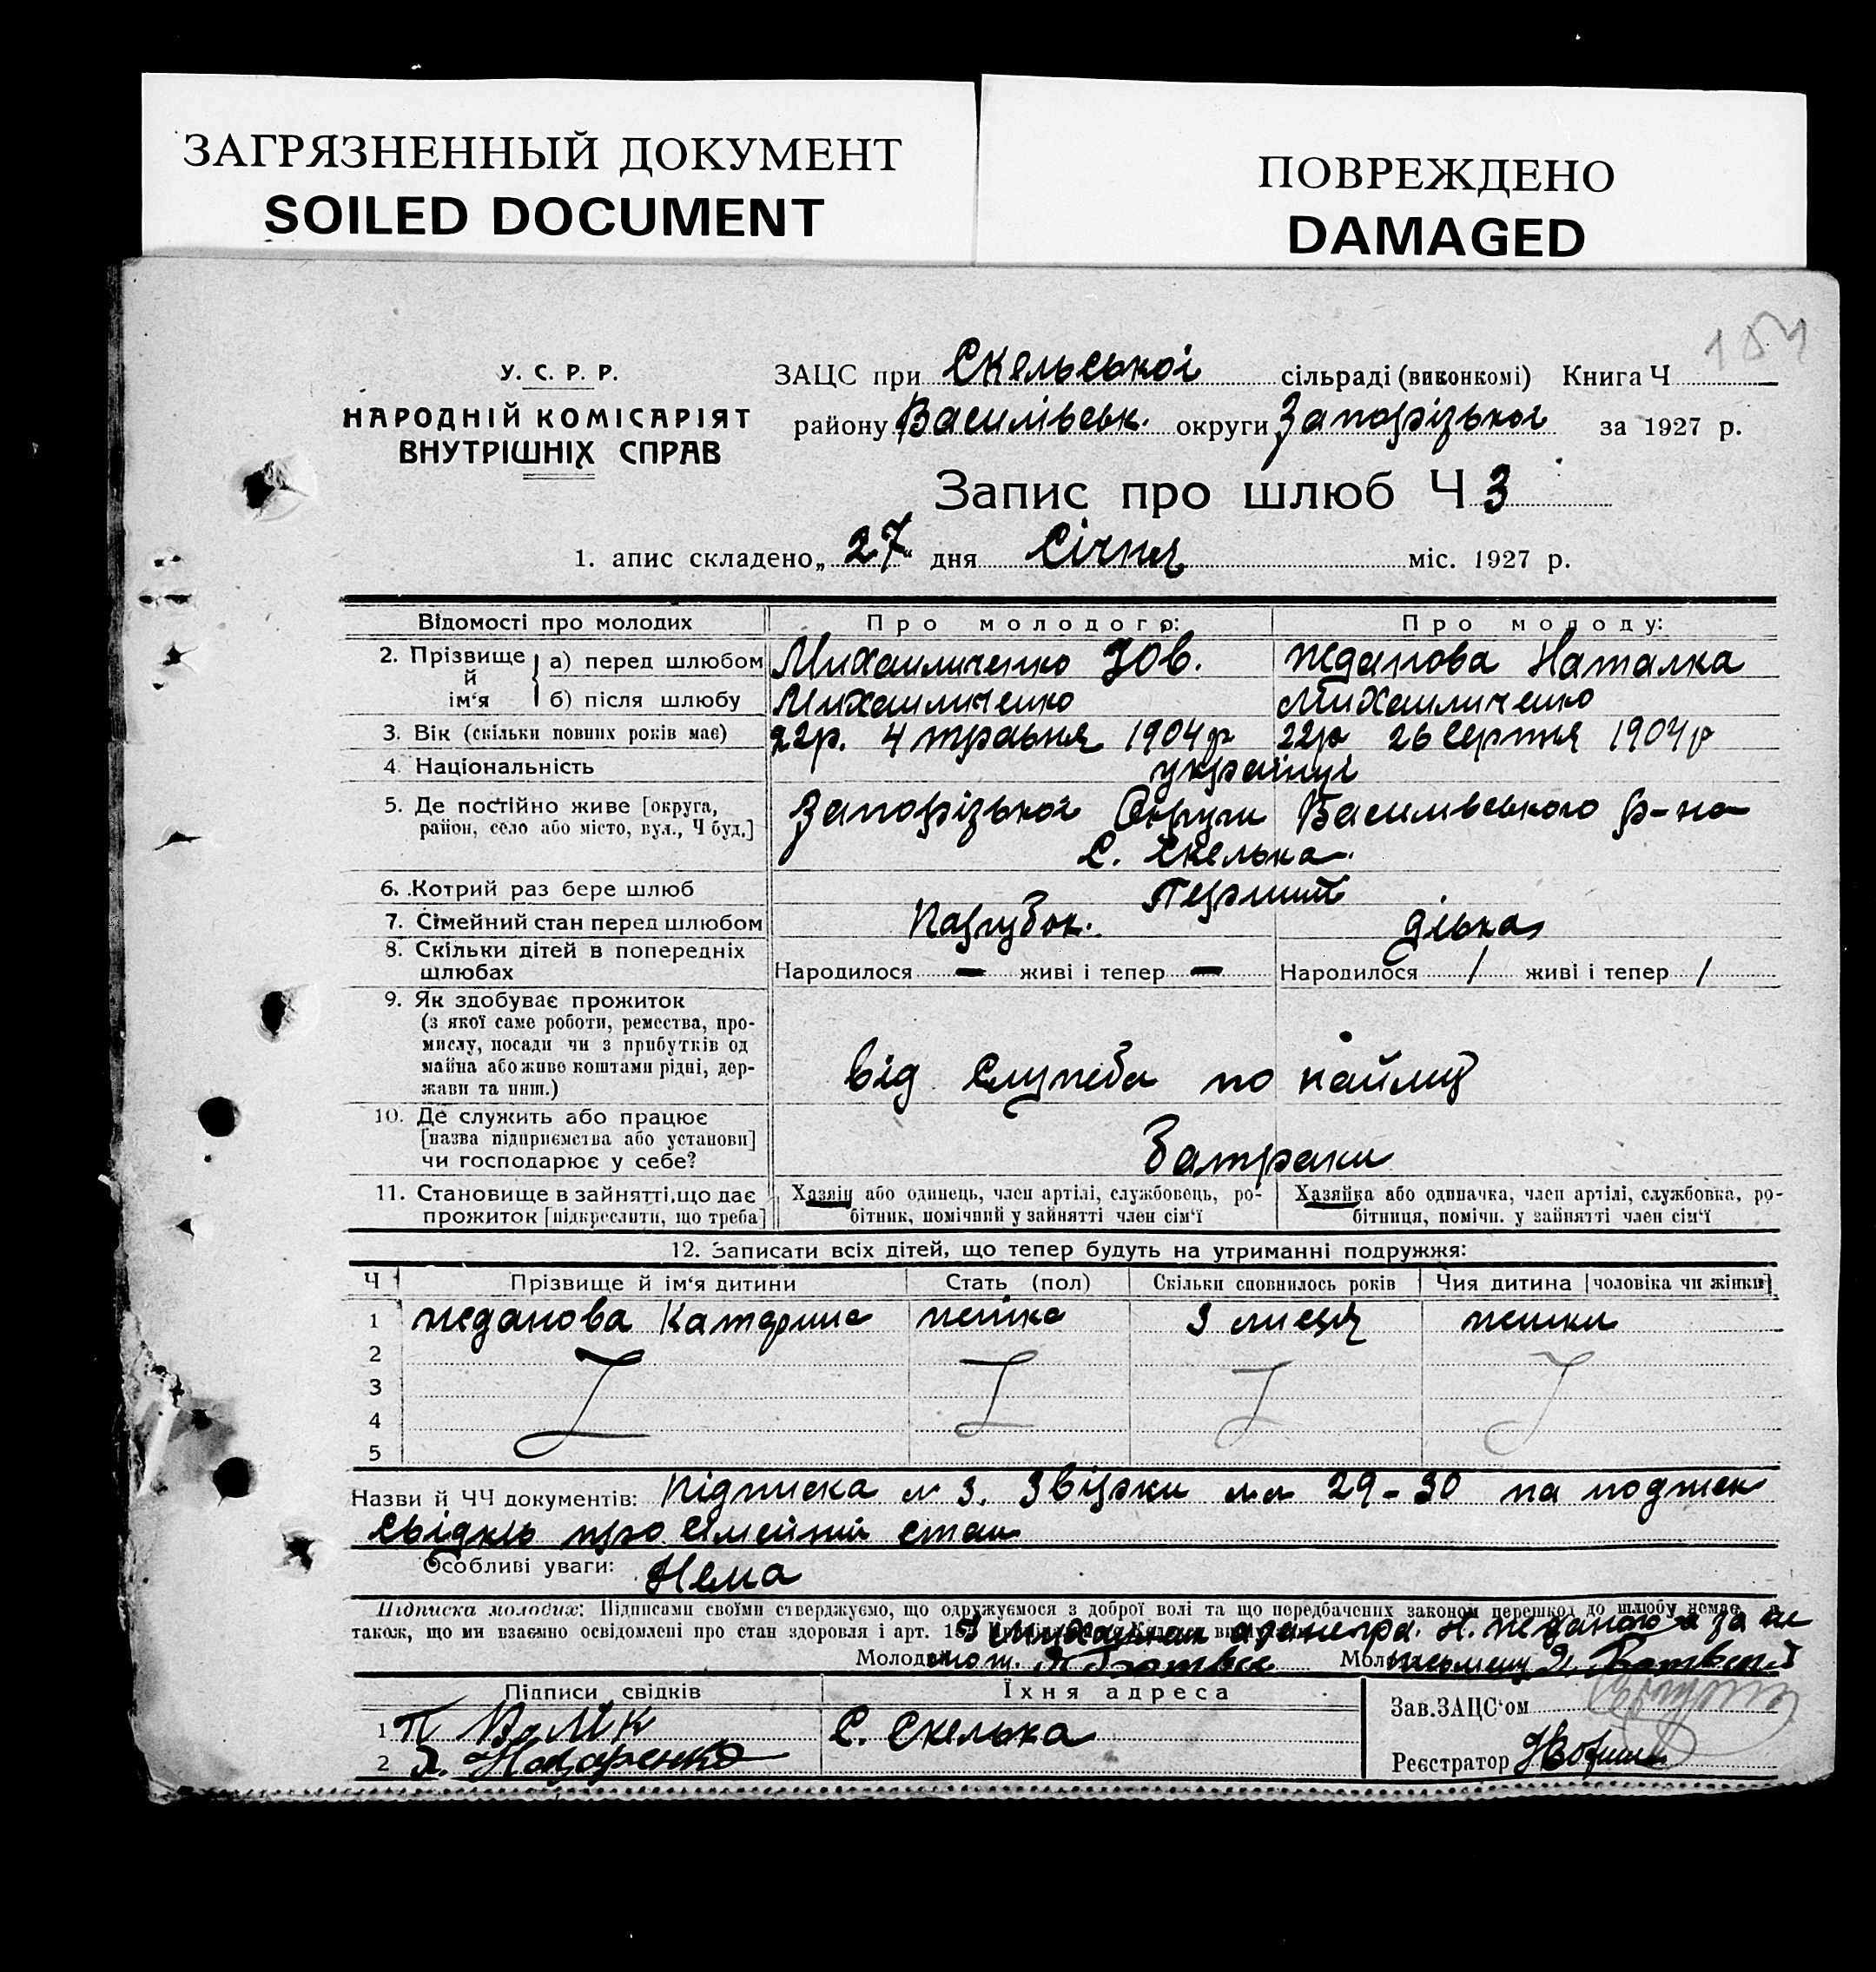 ЗАГРЯЗНЕННЫЙ ДОКУМЕНТ
SOILED DOCUMENT
ПОВРЕЖДЕНО
DAMAGED
У. С. Р. Р.
НАРОДНІЙ КОМІСАРІЯТ
ВНУТРІШНІХ СПРАВ
ЗАЦС при Скельської сільраді (виконкомі) Книга Ч
району Васильівськ. округи Запорізької за 1927 р.
Запис про шлюб Ч 3
1. апис складено „27“ дня Січня міс. 1927 р.
Відомості про молодих Про молодого: Про молоду:
2. Прізвище й ім'я а) перед шлюбом Михайличенко Жданова Наталка
б) після шлюбу Михайличенко Михайличенко
3. Вік (скільки повних років має) 22р. 4 травня 1904р 22р 26 серпня 1904р
4. Національність українці
5. Де постійно живе [округа, Запорізької Округи Васильвського р-на
район, село або місто, вул., Ч буд.] С. Скелька.
6. Котрий раз бере шлюб Перший
7. Сімейний стан перед шлюбом Парубок. дівка
8. Скільки дітей в попередніх
шлюбах Народилося — живі і тепер — Народилося / живі і тепер /
9. Як здобуває прожиток
(з якої саме роботи, ремества, про-
мислу, посади чи з прибутків од
майна або живе коштами рідні, дер-
жави та инш.) від служба по найму
10. Де служить або працює
[назва підприємства або установи]
чи господарює у себе? батраки
11. Становище в зайнятті, що дає Хазяїн або одинець, член артілі, службовець, ро- Хазяйка або одиначка, член артілі, службовка, ро-
прожиток [підкреслити, що треба] бітник, помічний у зайнятті член сім'ї бітниця, помічн. у зайнятті член сім'ї
12. Записати всіх дітей, що тепер будуть на утриманні подружжя:
Ч Прізвище й ім'я дитини Стать (пол) Скільки сповнилось років Чия дитина [чоловіка чи жінки]
1 Жданова Катерина жінка 3 жінки
2
3
4
5
Назви й ЧЧ документів: Підписка № 3. Звірки 29-30 на
про сімейний стан
Особливі уваги: Нема
Підписка молодих: Підписами своїми стверджуємо, що одружуємося з доброї волі та що передбачених законом перешкод до шлюбу немає, а
також, що ми взаємно освідомлені про стан здоровля і арт.
Підписи свідків Їхня адреса Зав. ЗАЦС'ом
1 П С. Скелька
2 Назаренко Реєстратор